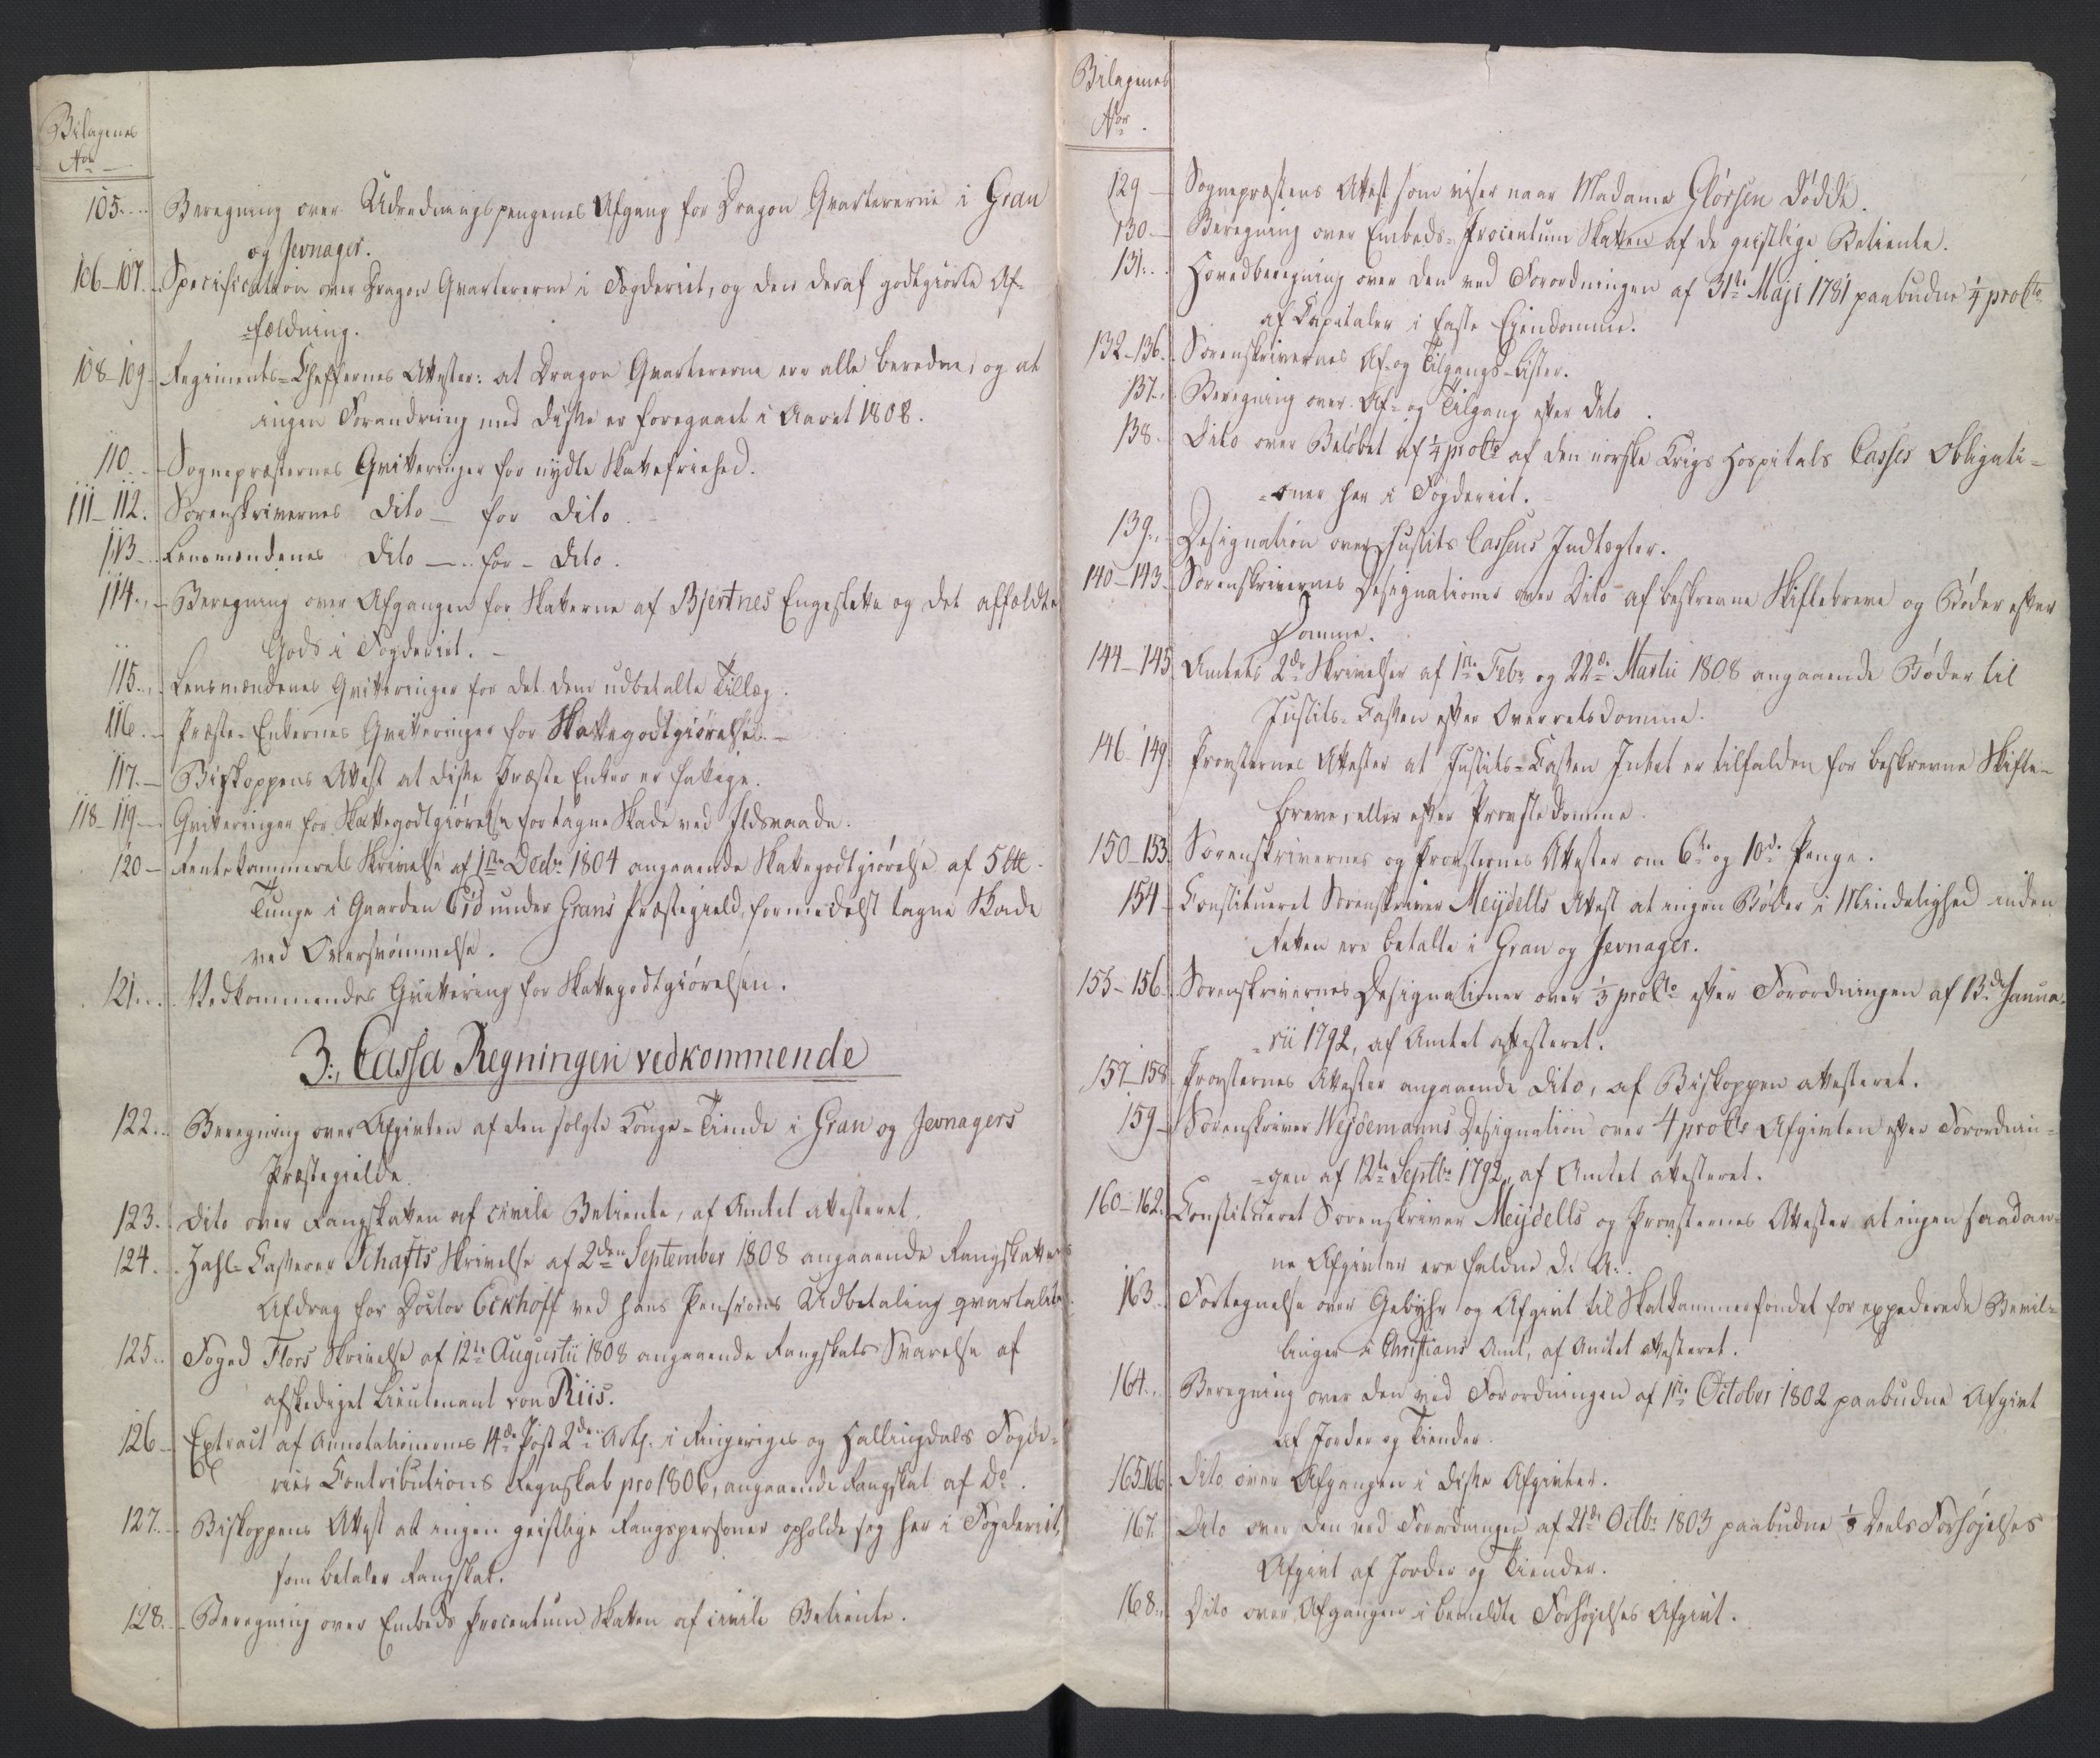 Bilagenes
No
105. Beregning over Udredningspengenes Afgang for Dragon Qvartererne i Gran
og Jevnager.
106-107. Specification over Dragon Qvartererne i Fogderiet, og den deraf godtgiorte Af-
-fældning.
108-109 Regiments-Cheffernes Attester: at Dragon Qvartererne ere alle beredne, og at
ingen Forandring med disse er foregaaet i Aaret 1808.
110. Sognepræsternes Qvitteringer for nydte Skattefriehed.
111-112. Sorenskrivernes Dito - for Dito
113. Lensmændenes Dito - for - Dito.
114. Beregning over Afgangen for Skatterne af Bjertnes Engeslette og det affældte
Gods i Fogderiet.
115. Lensmændenes Qvitteringer for det dem udbetalte Tillæg.
116. Præste-Enkernes Qvitteringer for Skattegodtgiørelse.
117. Biskoppens Attest at disse Præste Enker er fattige.
118-119 Qvitteringer for Skattegodtgiørelse for tagne Skade ved Ildsvaade.
120 Rentekammerets Skrivelse af 1ste Decbr 1804 angaaende Skattegodtgiørelse af 5 
Tunge i Gaarden Eid under Grans Præstegield, formedelst tagne Skade
ved Oversvømmelse.
121. Vedkommendes Qvittering for Skattegodtgiørelsen.
3., Cassa Regningen vedkommende
122. Beregning over Afgivten af den solgte Konge-Tiende i Gran og Jevnagers
Præstegielde.
123. Dito over Rangskatten af civile Betiente, af Amtet attesteret.
124. Zahl-Casserer Schafts Skrivelse af 2den September 1808 angaaende Rangskattens
Afdrag for Doctor Eckhoff ved hans Pensions Udbetaling qvartaliter.
125. Foged Flors Skrivelse af 12te Augustii 1808 angaaende Rangskats Svarelse af
afskediget Lieutenant von Riis.
126 Extract af Annotationernes 14de Post 2den Artl. i Ringeriges og Hallingdals Fogde-
ries Contributions Regnskab pro 1806, angaaende Rangskat af Do.
127. Biskoppens Attest at ingen geistlige Rangspersoner opholde seg her i Fogderiet,
som betaler Rangskat.
128. Beregning over Embeds Procentum Skatten af civile Betiente.
Bilagenes
No.
129 Sognepræstens Attest som viser naar Madame Glørsen dødde.
130 Beregning over Embeds-Procentum Skatten af de geistlige Betiente.
131. Hovedberegning over den ved Forordningen af 31te Maji 1781 paabudne 1/4 proCto
af Capitaler i faste Eiendomme.
132-136. Sorenskrivernes Af- og Tilgangs-Lister.
137. Beregning over Af- og Tilgang efter Dito.
138. Dito over Beløbet af 1/4 proCto af den norske Krigs Hospitals Casses Obligati-
-oner her i Fogderiet.
139. Designation over Justits Cassens Indtægter.
140-143. Sorenskrivernes Designationer over Dito af beskrevne Skiftebreve og Bøder efter
Domme.
144-145 Amtets 2de Skrivelser af 1ste Febr og 22de Martii 1808 angaaende Bøder til
Justits-Cassen efter Overretsdomme.
146-149. Provsternes Attester at Justits-Cassen Intet er tilfalden for beskrevne Skifte-
breve, eller efter Provstedomme.
150-153 Sorenskrivernes og Provsternes Attester om 6te og 10de Penge.
154 Constitueret Sorenskriver Meydells Attest at ingen Bøder i Mindelighed inden
Retten ere betalte i Gran og Jevnager.
155-156 Sorenskrivernes Designationer over 1/3 proCto efter Forordningen af 13de Janua-
-rii 1792, af Amtet attesteret.
157-158 Provsternes Attester angaaende Dito, af Biskoppen attesteret.
159 Sorenskriver Wejdemanns Designation over 4 proCto Afgivten efter Forordnin-
-gen af 12te Septbr 1792, af Amtet attesteret.
160-162. Constitueret Sorenskriver Meydells og Provsternes Attester at ingen saadan-
ne Afgivter ere faldne d: A:.
163. Fortegnelse over Gebyhr og Afgivt til Skatkammerfondet for expederede Bevil-
linger i Christians Amt, af Amtet attesteret.
164. Beregning over den ved Forordningen af 1ste October 1802 paabudne Afgivt
af Jorder og Tiender.
165.166. Dito over Afgangen i disse Afgivter.
167. Dito over den ved Forordningen af 21de Octbr 1803 paabudne 1/8 Deels Forhøjelses
Afgivt af Jorder og Tiender.
168. Dito over Afgangen i bemeldte Forhøjelses Afgivt.